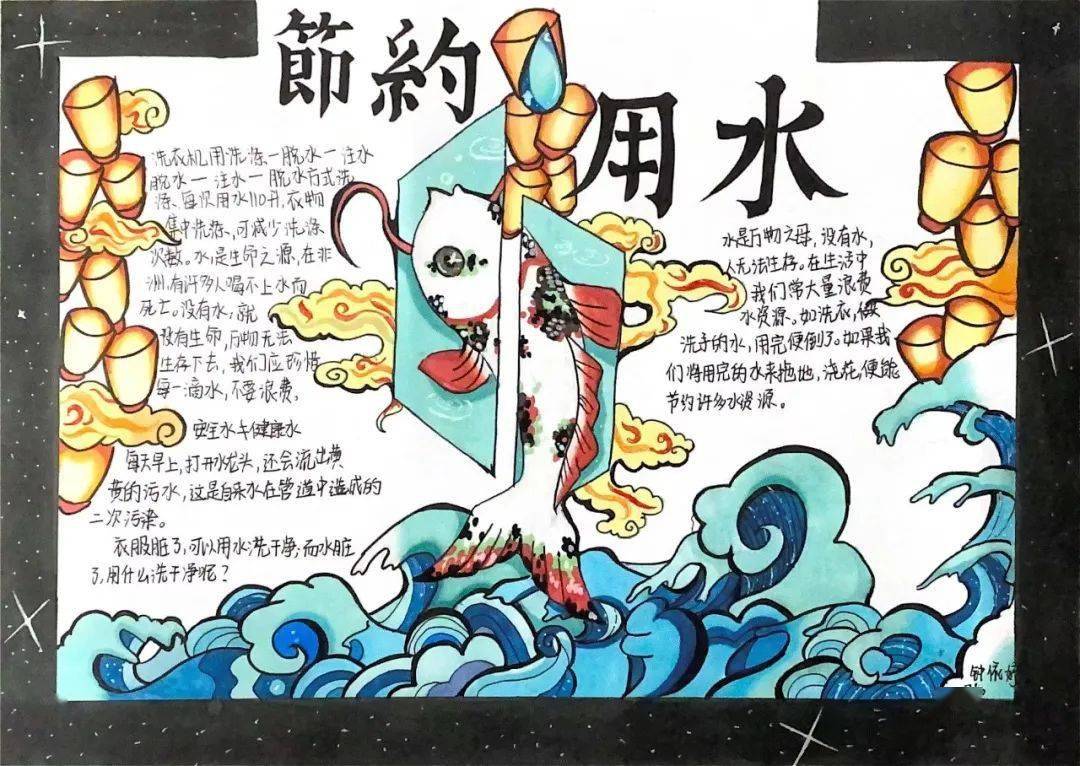 節約
用水
洗衣机用洗涤一脱水一注水
脱水一注水一脱水方式洗
涤、每次用水110升,衣物
集中洗涤,可减少洗涤
次数。水是生命之源,在非
洲,有许多人喝不上水而
死亡。没有水,就
没有生命,万物无法
生存下去,我们应珍惜
每一滴水,不要浪费,
安全水≠健康水
每天早上,打开水龙头,还会流出黄
黄的污水,这是自来水在管道中造成的
二次污染。
衣服脏了,可以用水洗干净;而水脏
了,用什么洗干净呢?
水是万物之母,没有水,
人无法生存。在生活中
我们常大量浪费
水资源。如洗衣,做
洗手的水,用完便倒了。如果我
们将用完的水来拖地,浇花,便能
节约许多水资源。